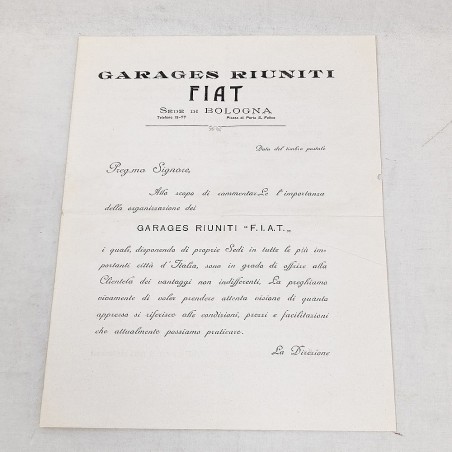 GARAGES RIUNITI
FIAT
SEDE DI BOLOGNA
Telefono 15-77 Piazza di Porta S. Felice
Data del timbro postale
Preg.mo Signore,
Allo scopo di commentarLe l'importanza
della organizzazione dei
GARAGES RIUNITI "F.I.A.T.„
i quali, disponendo di proprie Sedi in tutte le più im-
portanti città d'Italia, sono in grado di offrire alla
Clientela dei vantaggi non indifferenti, La preghiamo
vivamente di voler prendere attenta visione di quanto
appresso si riferisce alle condizioni, prezzi e facilitazioni
che attualmente possiamo praticare.
La Direzione